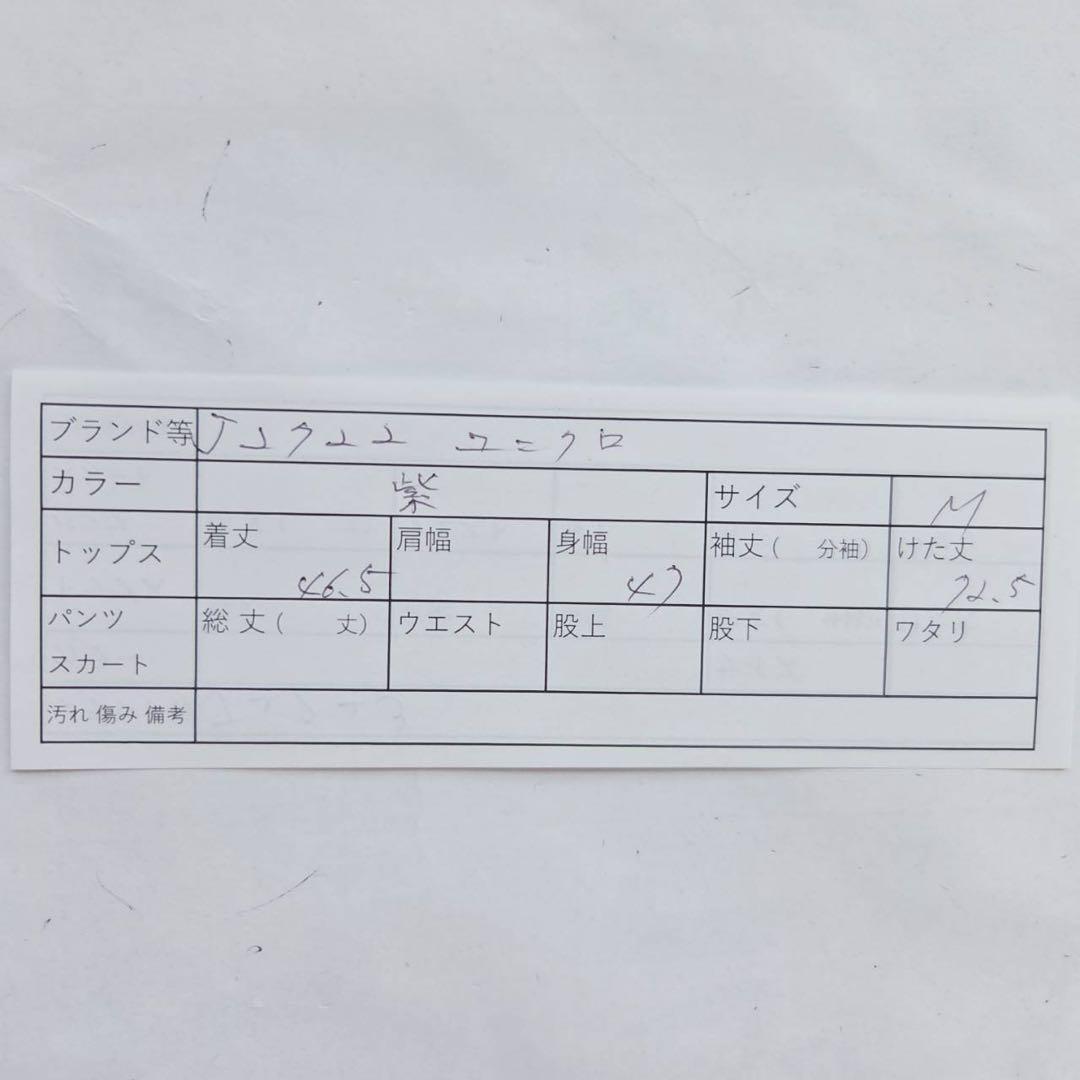 ブランド等 ユニクロ
カラー 紫 サイズ M
トップス 着丈 46.5 肩幅 身幅 47 袖丈( 分袖) けた丈 72.5
パンツ 総丈( 丈) ウエスト 股上 股下 ワタリ
スカート
汚れ 傷み 備考